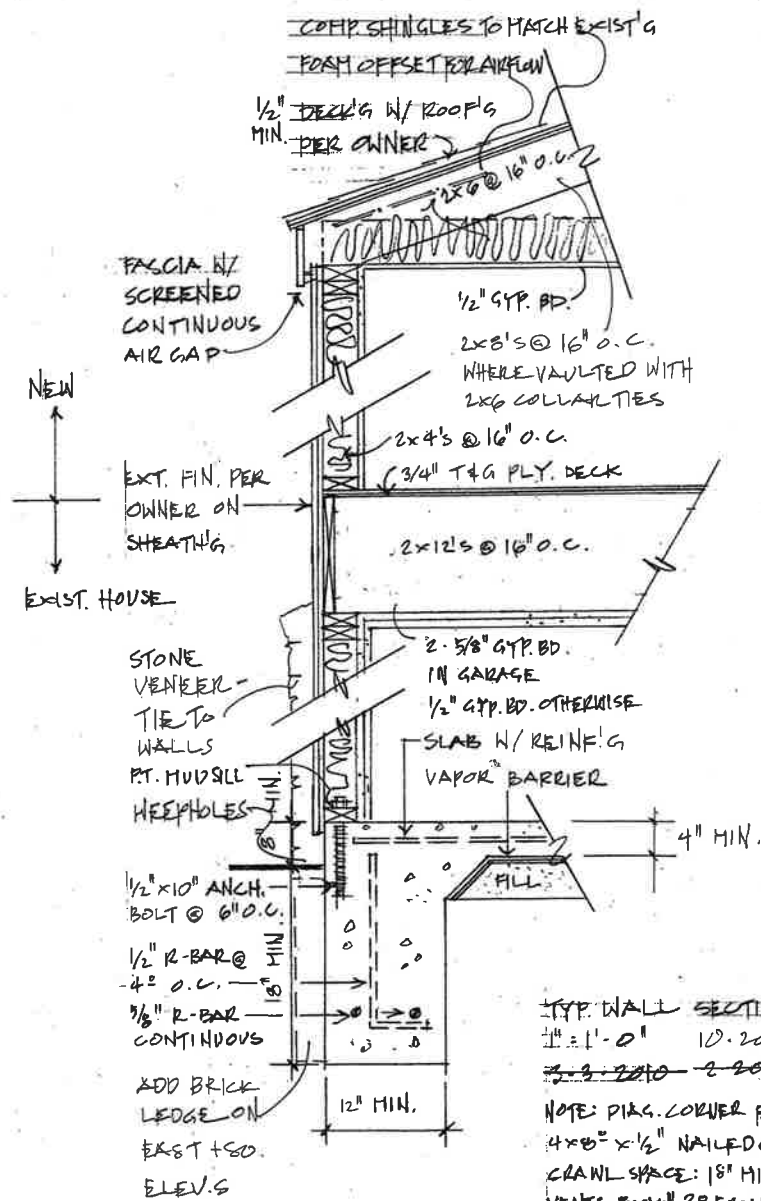 COMP. SHINGLES TO MATCH EXIST'G
FOAM OFFSET FOR AIRFLOW
1/2" DECK'G W/ ROOF'G
MIN. PER OWNER
2x6 @ 16" O.C.
FASCIA W/
SCREENED
CONTINUOUS
AIR GAP
1/2" GYP. BD.
2x8'S @ 16" O.C.
WHERE VAULTED WITH
2x6 COLLAR TIES
NEW
2x4'S @ 16" O.C.
3/4" T&G PLY. DECK
EXT. FIN. PER
OWNER ON
SHEATH'G
2x12'S @ 16" O.C.
EXIST. HOUSE
STONE
VENEER-
TIE TO
WALLS
2-5/8" GYP. BD.
IN GARAGE
1/2" GYP. BD. OTHERWISE
P.T. MUDSILL
WEEPHOLES
8" MIN.
SLAB W/ REINF'G
VAPOR BARRIER
4" MIN.
FILL
1/2"x10" ANCH.
BOLT @ 6" O.C.
1/2" R-BAR @
4º O.C.
18" MIN.
5/8" R-BAR
CONTINUOUS
ADD BRICK
LEDGE ON
EAST + SO.
ELEV.S
12" MIN.
TYP. WALL SECTI
1" = 1'-0" 10-20
3-3-2010 2-20
NOTE: DIAG. CORNER
4x8º x 1/2" NAILED
CRAWL SPACE: 18" MI